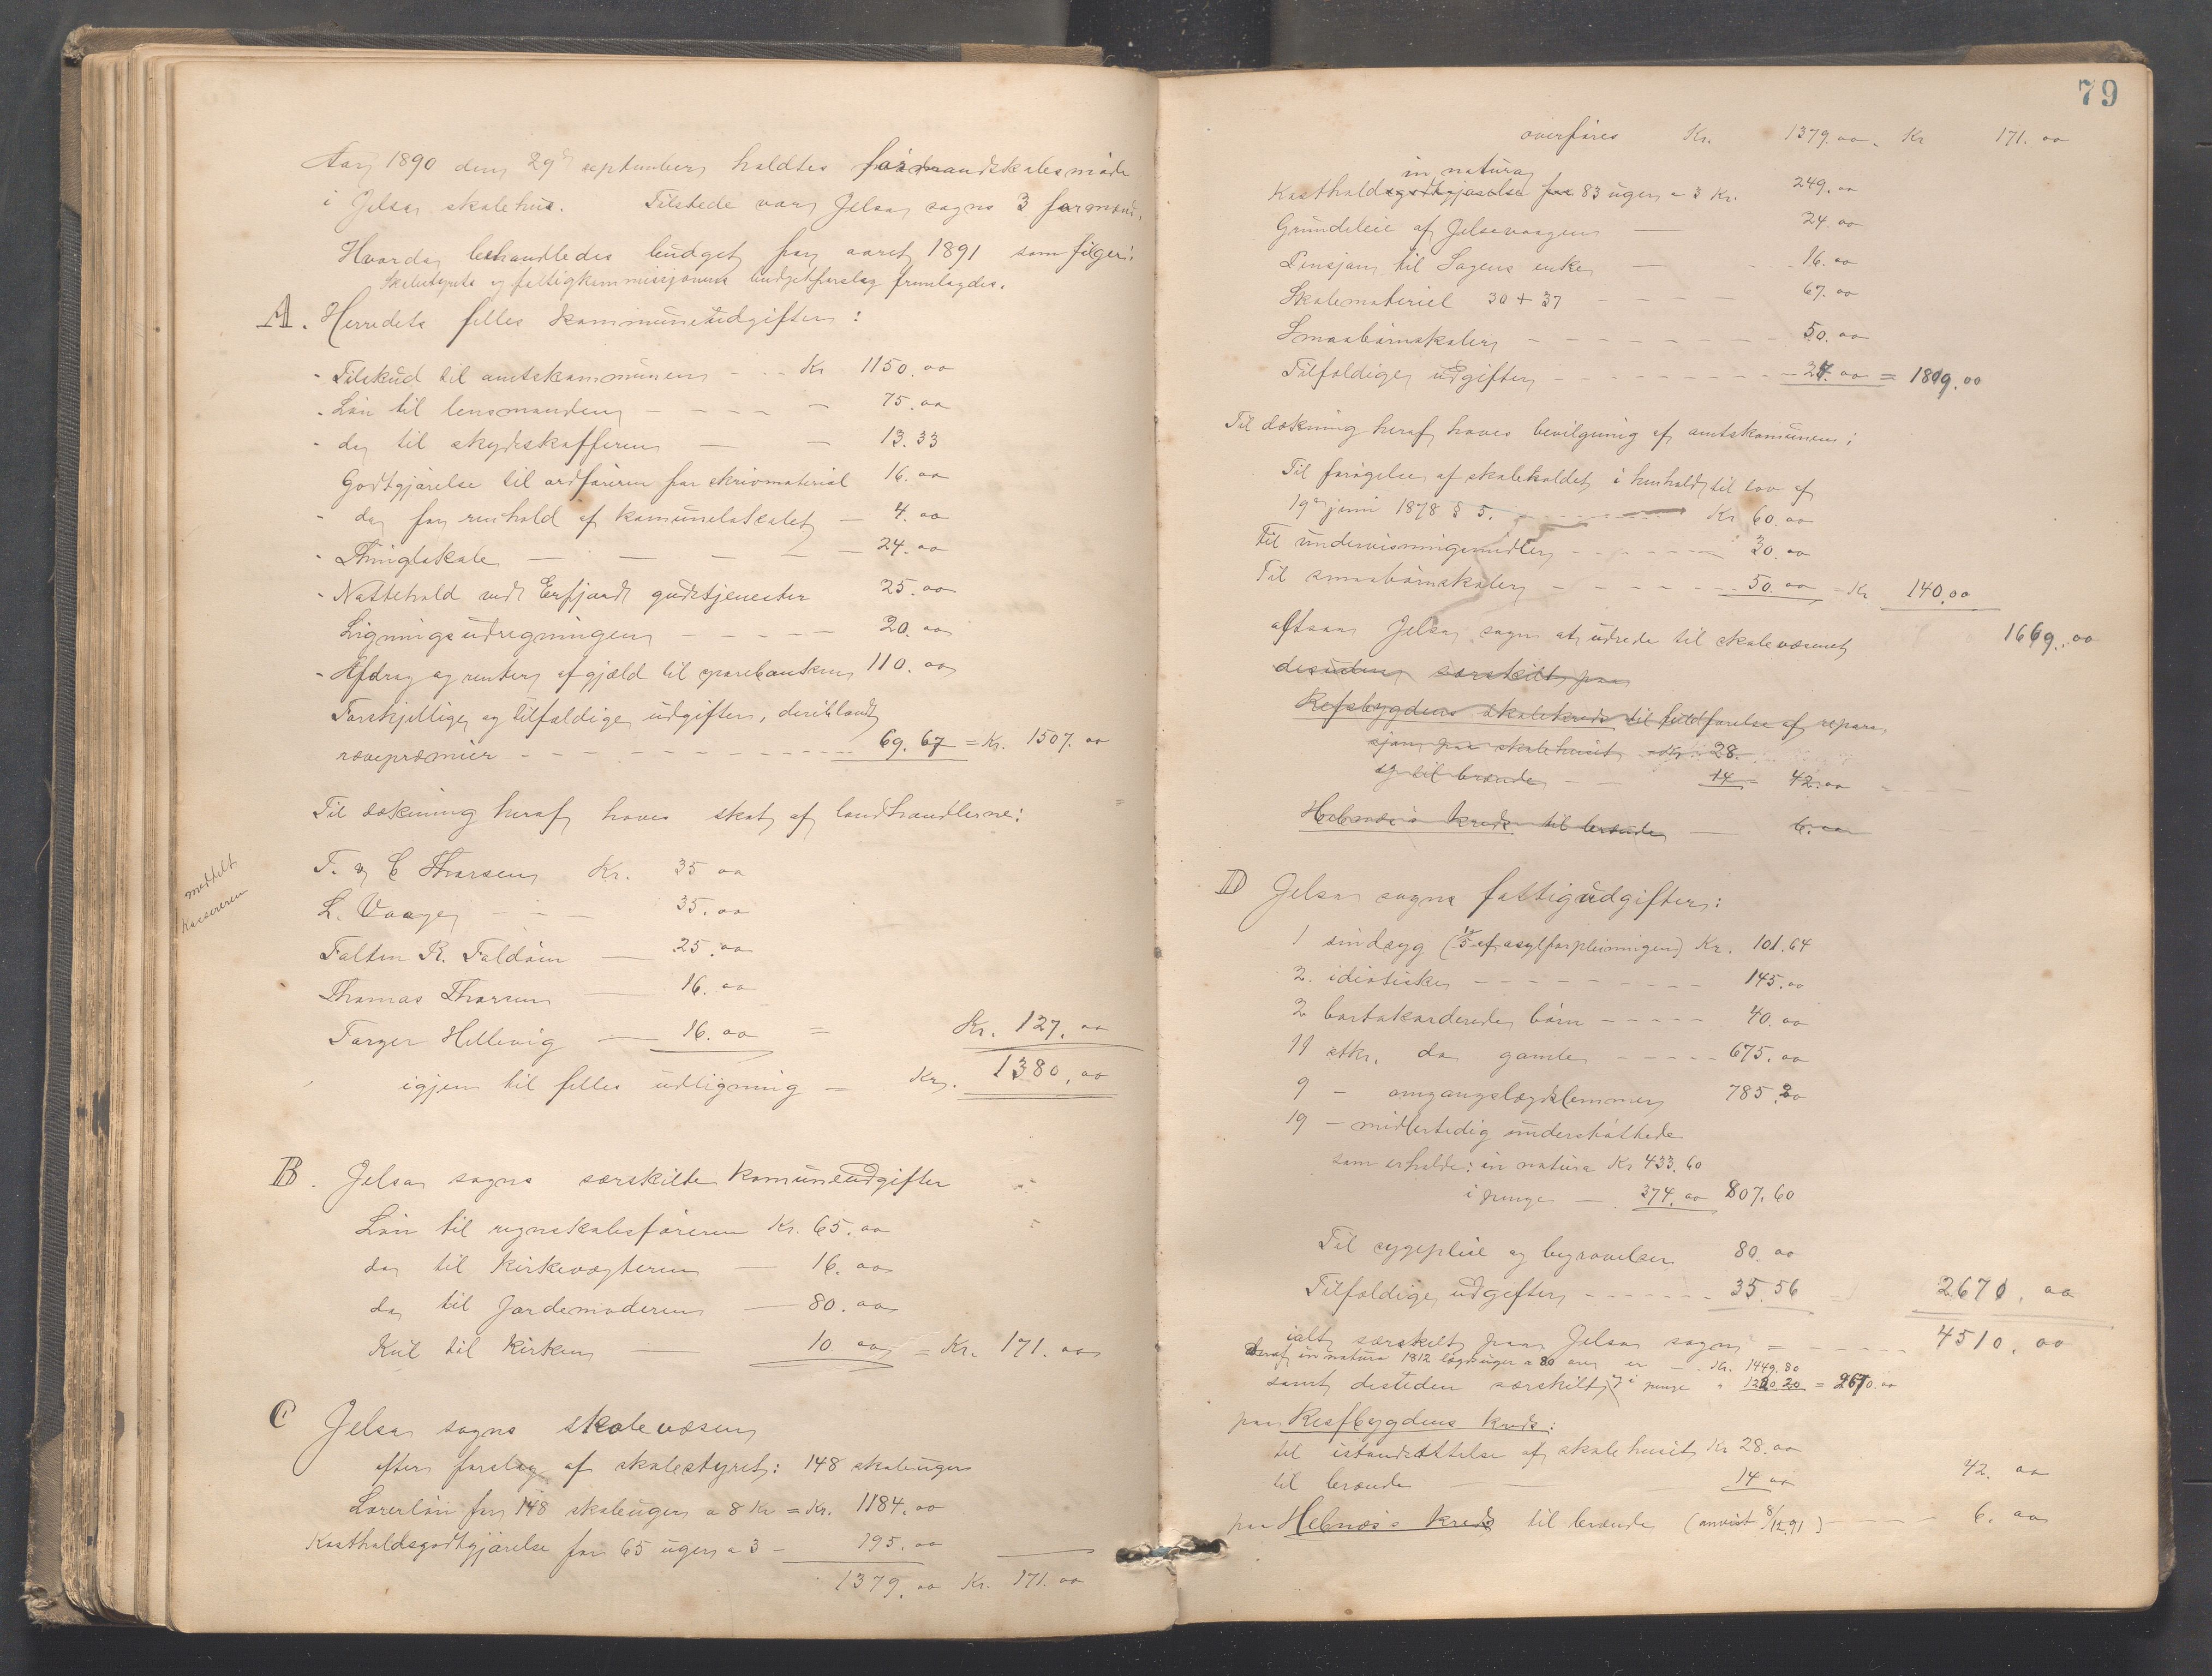 Aar 1890 den 29de september holdtes formandskabsmøde
i Jelsa skolehus. Tilstede var Jelsa sogns 3 formænd.
Hvorda behandledes budget for aaret 1891 som følger:
Skolestyrets og fattigkommissjonens budgetforslag fremlagdes.
A. Herredets felles kommuneudgifter:
- Tilskud til amtskommunen - - - Kr 1150.oo
- Løn til lensmanden - - - - 75.oo
- do til skydsskafferen — — 13.33
Godtgjørelse til ordføreren for skrivmaterial 16.oo
- do for renhold af komunelokalet — 4.oo
- Thinglokale — — — — 24.oo
- Nattehold ved Erfjord gudstjenester 25.oo
Ligningsudregningen - - - - - 20.oo
- Afdrag og renter af gjæld til sparebanken 110.oo
Forskjellige og tilfældige udgifter, deriblandt
rævepræmier - - - - - - - - - 69.67 = Kr. 1507.oo
Til dækning heraf haves skat af landhandlerne:
meddelt
Kassereren
T. & C Thorsen Kr. 35 oo
L. Vaage - - - 35.oo
Falten R. Foldøen — 25.oo
Thomas Thorsen — 16.oo
Torger Hellevig — 16.oo = Kr. 127.oo
igjen til felles udligning = Kr. 1380.oo
B. Jelsa sogns særskilte komuneudgifter
Løn til regnskabsføreren Kr. 65.oo
do til Kirkevægteren — 16.oo
do til Jordemoderen — 80.oo
Kul til Kirken — 10 oo = Kr. 171.oo
C Jelsa sogns skolevæsen
efter forslag af skolestyret: 148 skoleuger
Lærerløn for 148 skoleuger a 8 Kr = Kr. 1184.oo
Kostholdsgodtgjørelse for 65 uger a 3 - 195.oo
1379.oo Kr. 171.oo
79
overføres Kr. 1379.oo. Kr 171.oo
in natura
Kostholdsgodtgjørelse for 83 uger a 3 Kr. 249.oo
Grundleie af Jelsevaagen — 24.oo
Pensjon til Sagens enke — 16.oo
Skolemateriel 30 + 37 - - - - 67.oo
Smaabørnskolen - - - - - - - 50.oo
Tilfældige udgifter - - - - - - - - 27.oo = 1809.oo
Til dækning heraf haves bevilgning af amtskomunen:
Til forøgelse af skoleholdet i henhold til lov af
19de juni 1878 § 5. - - - - - - Kr 60.oo
Til undervisningsmidler - - - - - - 30.oo
Til smaabørnskolen - - - - - - 50.oo = Kr 140.oo
altsaa Jelsa sogn at udrede til skolevæsenet 1669.oo
desuden særskilt paa
Refsbygdens skolekreds til fuldførelse af repara
sjon paa skolehuset Kr. 28.
og til brænde — — 14 - 42.oo
Hebnæs's kreds til brænde — 6.oo
D Jelsa sogns fattigudgifter:
1 sindsyg ( af asylforpleiningen) Kr. 101.64
2. idiotiske - - - - - - - - - 145.oo
2 bortakorderede børn - - - - - 40.oo
11 stkr. do gamle - - - - - 675.oo
9 - omgangslægdslemmer 785.20
19 - midlertidig understøttede
som erholde: in natura Kr 433.60
i penge — 374.oo 807.60
Til sygepleie og begravelser 80.oo
Tilfældige udgifter - - - - - - - 35.56 2670.oo
ialt særskilt paa Jelsa sogn = - - - - - 4510.oo
deraf in natura 1812 lægdsuger a 80 øre er - - Kr. 1449.80
samt desuden særskilt, i penge " 1220 20 = 2670.oo
paa Resfbygdens kreds:
til istandsættelse af skolehuset Kr 28.oo
til brænde — — 14 oo 42.oo
paa Hebnæs's kreds til brænde (anvist 8/12 91) — — 6.oo